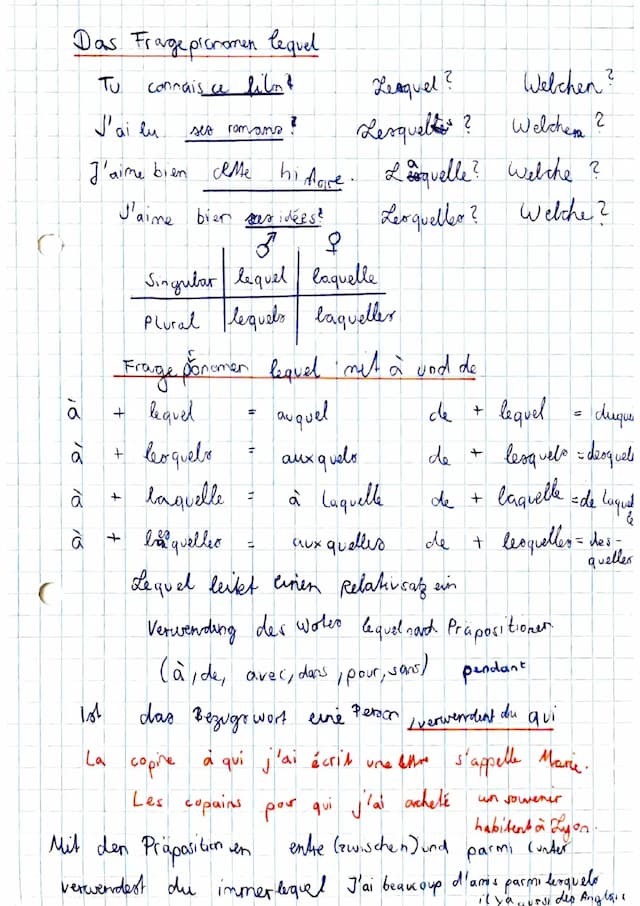 Das Fragepronomen lequel
Tu connais ce film? Lequel? Welchen?
J'ai lu ses romans? Lesquels? Welchen?
J'aime bien cette histoire. Laquelle? Welche?
J'aime bien ses idées? Lesquelles? Welche?
♂ ♀
Singular lequel laquelle
Plural lequels laquelles
Fragepronomen lequel mit à und de
à + lequel = auquel de + lequel = duque
à + lesquels = auxquels de + lesquels = desquels
à + laquelle = à laquelle de + laquelle = de laquel
le
à + lesquelles = auxquelles de + lesquelles = des-
quelles
Lequel leitet einen Relativsatz ein
Verwendung des Wotes lequel nach Präpositionen
(à, de, avec, dans, pour, sans) pendant
Ist das Bezugswort eine Person, verwendest du qui
La copine à qui j'ai écrit une lettre s'appelle Marie.
Les copains pour qui j'ai acheté un souvenir
habitent à Lyon.
Mit den Präpositionen entre (zwischen) und parmi (unter
verwendest du immer lequel J'ai beaucoup d'amis parmi lesquels
il y a aussi des Anglais